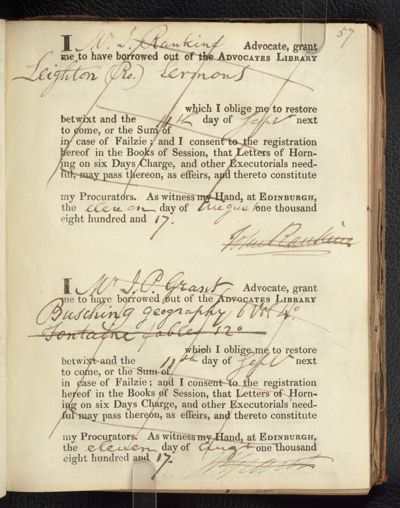 57
I Mr J. Rankine Advocate, grant
me to have borrowed out of the ADVOCATES LIBRARY
Leighton (Ro.) Sermons
which I oblige me to restore
betwixt and the 11th day of Sept next
to come, or the Sum of
in case of Failzie; and I consent to the registration
hereof in the Books of Session, that Letters of Horn-
ing on six Days Charge, and other Executorials need-
ful, may pass thereon, as effeirs, and thereto constitute
my Procurators. As witness my Hand, at EDINBURGH,
the eleven day of August one thousand
eight hundred and 17.
John Rankine
I Mr J. P. Grant Advocate, grant
me to have borrowed out of the ADVOCATES LIBRARY
Busching geography 6 vols 4o
Fontaine fables 12o
which I oblige me to restore
betwixt and the 11th day of Sept next
to come, or the Sum of
in case of Failzie; and I consent to the registration
hereof in the Books of Session, that Letters of Horn-
ing on six Days Charge, and other Executorials need-
ful may pass thereon, as effeirs, and thereto constitute
my Procurators. As witness my Hand, at EDINBURGH,
the eleven day of Augt one thousand
eight hundred and 17.